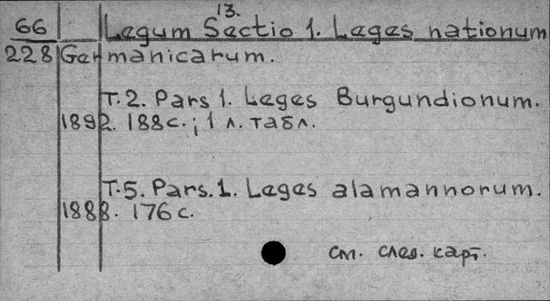 13.
66 Legum Sectio 1. Leges nationum
228 Germanicarum.
T. 2. Pars 1. Leges Burgundionum.
1892. 188 с.; 1 л. табл.
T. 5. Pars. 1. Leges alamannorum.
1888. 176 с.
см. след. карт.